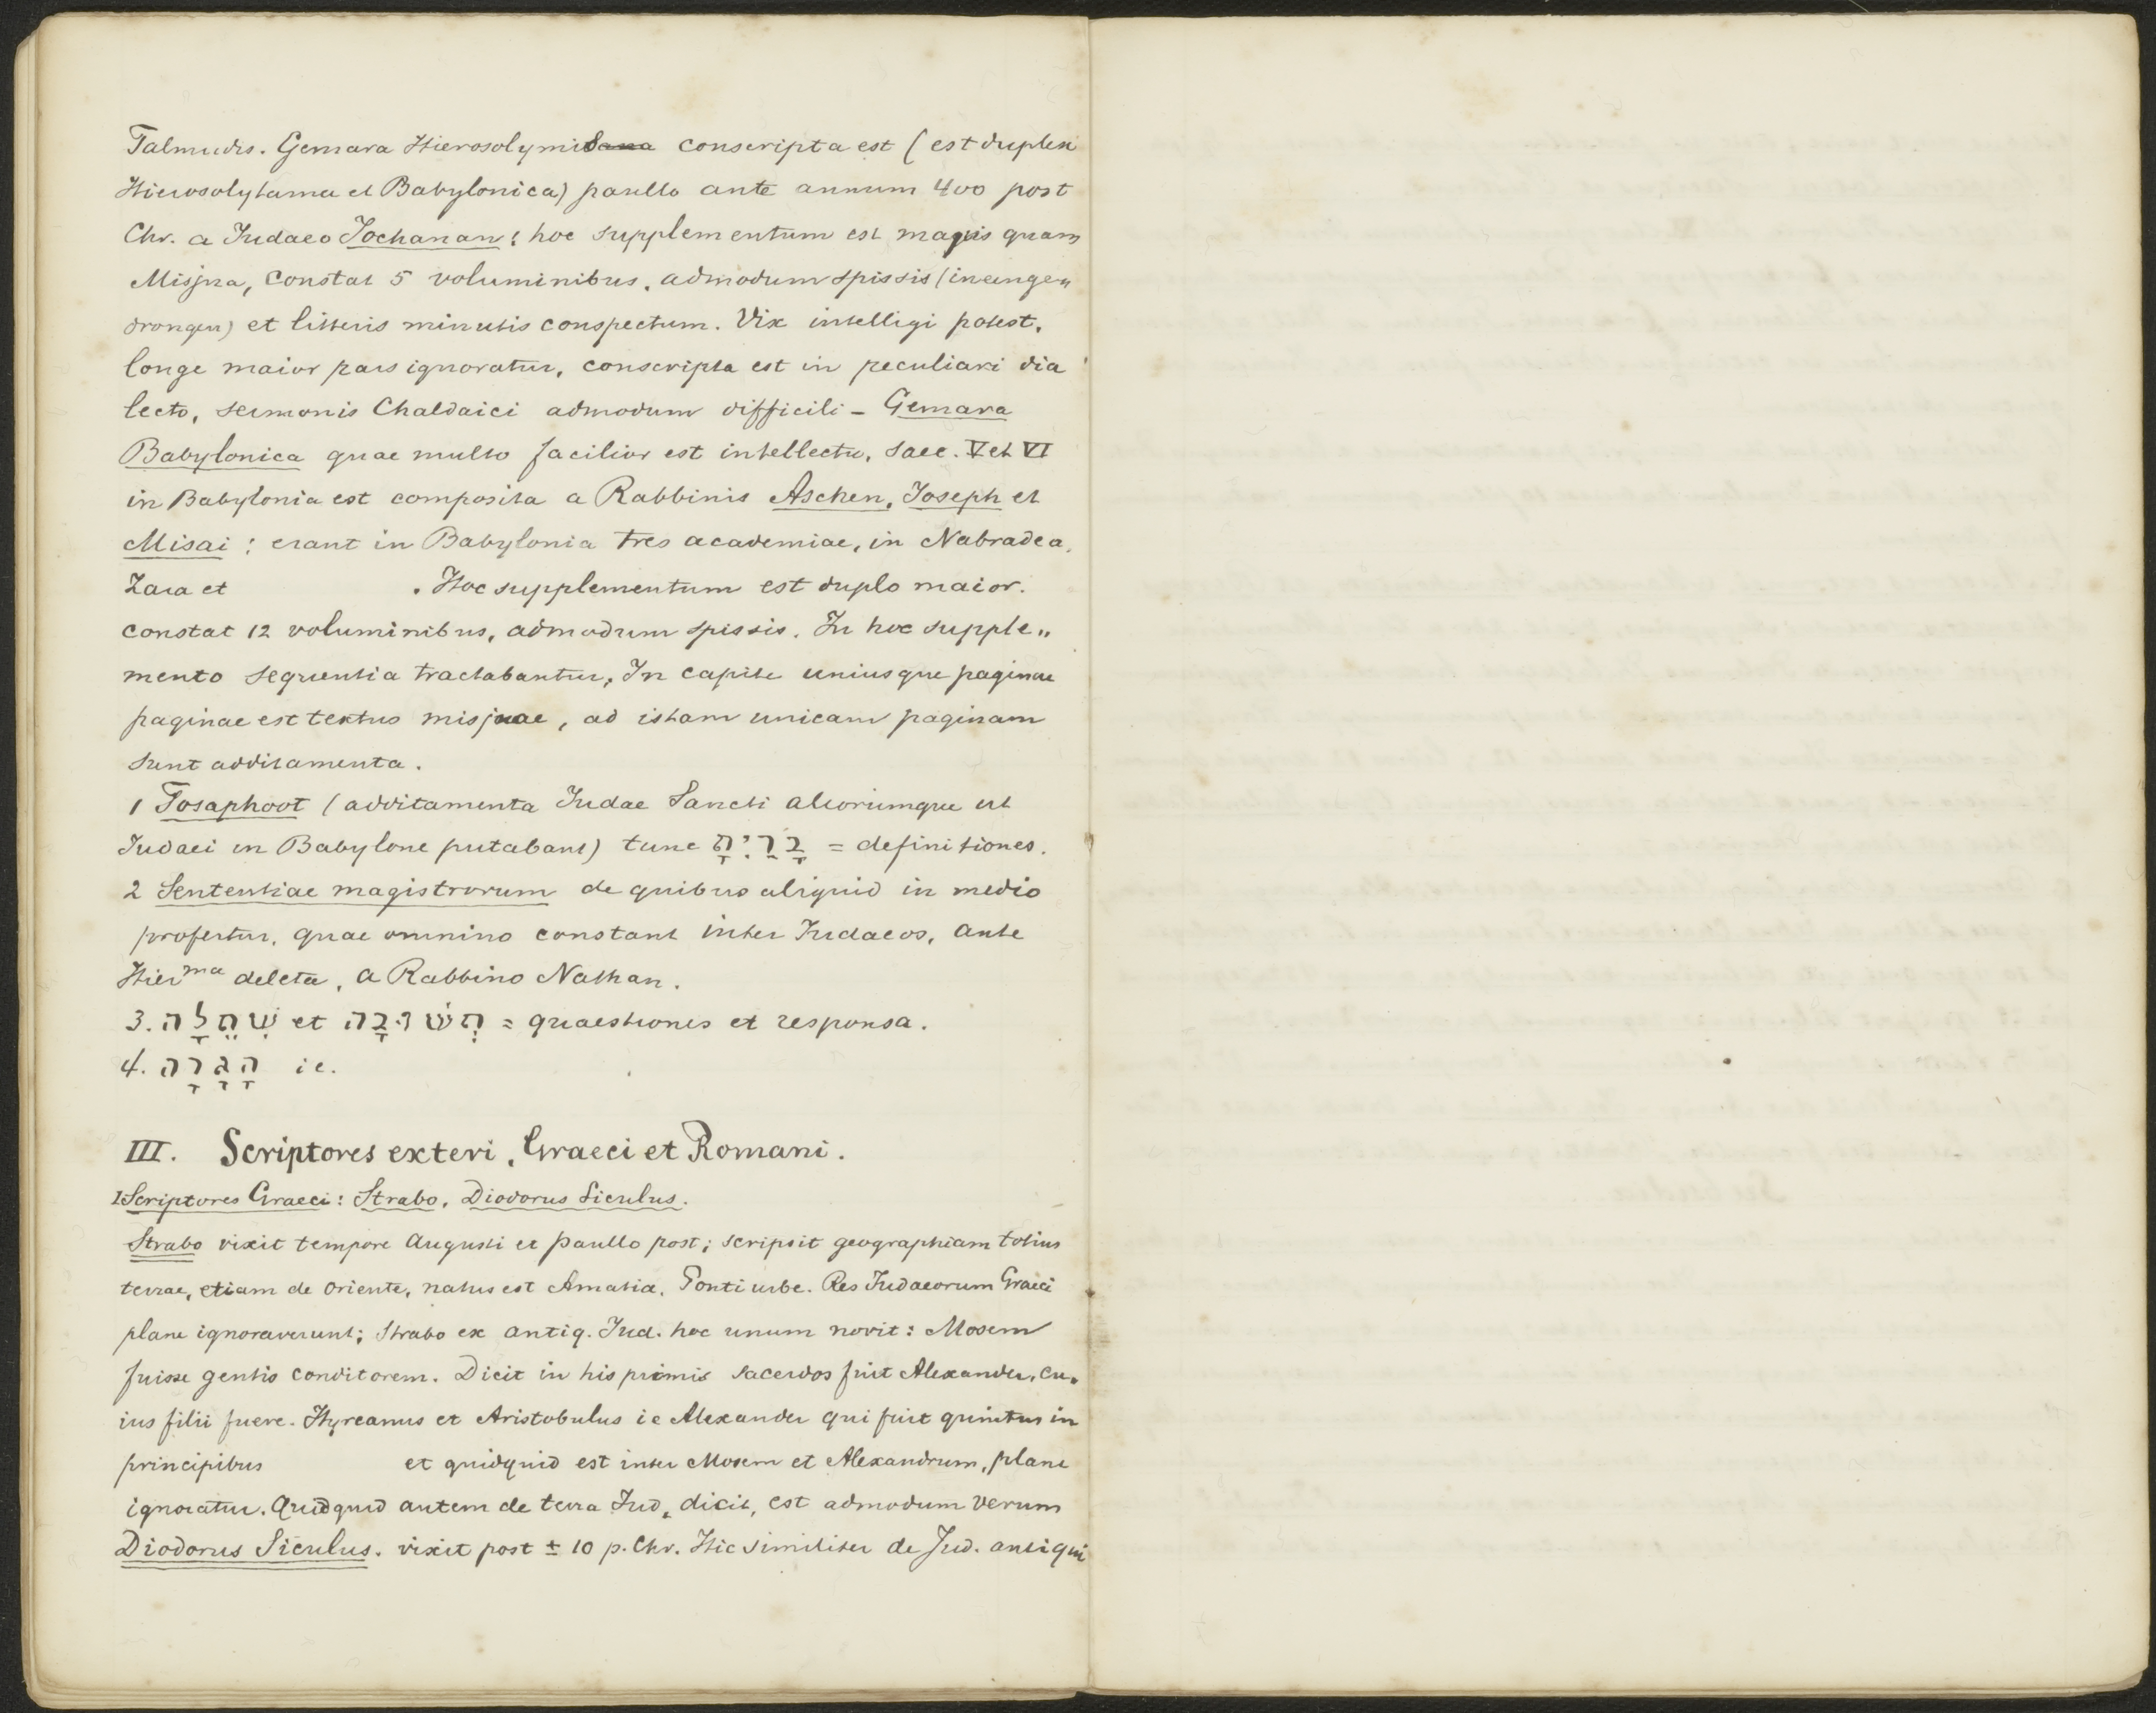 Talmudis. Gemara Hierosolymitana conscripta est (est duplex
Hierosolytama et Babylonica) paullo ante annum 400 post
Chr. a Iudaeo Iochanan: hoc supplementum est magis quam
Misjna, constat 5 voluminibus, admodum spissis (ineenge„
drongen) et litteris minutis conspectum. Vix intelligi potest,
longe maior pars ignoratur, conscripta est in peculiari dia
lecto, sermonis Chaldaici admodum difficili – Gemara
Babylonica quae multo facilior est intellectu, saec. V et VI
in Babylonia est composita a Rabbinis Aschen, Ioseph et
Misai: erant in Babylonia tres academiae, in Nabradea,
Zara et . Hoc supplementum est duplo maior.
constat 12 voluminibus, admodum spissis. In hoc supple„
mento sequentia tractabantur, In capite uniusque paginae
paginae est textus misjnae, ad istam unicam paginam
sunt additamenta.
1 Tosaphoot (additamenta Iudae Sancti aliorumque ut
Iudaei in Babylone putabant) tunc בָרַיִתָ = definitiones.
2 Sententiae magistrorum de quibus aliquid in medio
profertur, quae omnino constant inter Iudaeos, ante
Hier ma deleta, a Rabbino Nathan.
3. שְׁחֵלָה et תְשׁוּבָה = quaestiones et responsa.
4. הָגָרָה ie.
III. Scriptores exteri, Graeci et Romani.
1 Scriptores Graeci: Strabo, Diodorus Siculus.
Strabo vixit tempore Augusti et paullo post; scripsit geographiam totius
terrae, etiam de oriente, natus est Amatia, Ponti urbe. Res Iudaeorum Graeci
plane ignoraverunt; Strabo ex antiq. Iud. hoc unum novit: Mosem
fuisse gentis conditorem. Dicit in his primis sacerdos fuit Alexander, cu„
ius filii fuere. Hyrcanus et Aristobulus ie Alexander qui fuit quintus in
principibus et quidquid est inter Mosem et Alexandrum, plane
ignoratur. Quidquid autem de terra Iud, dicit, est admodum verum
Diodorus Siculus. vixit post ± 10 p. Chr. Hic similiter de Iud. antiqui